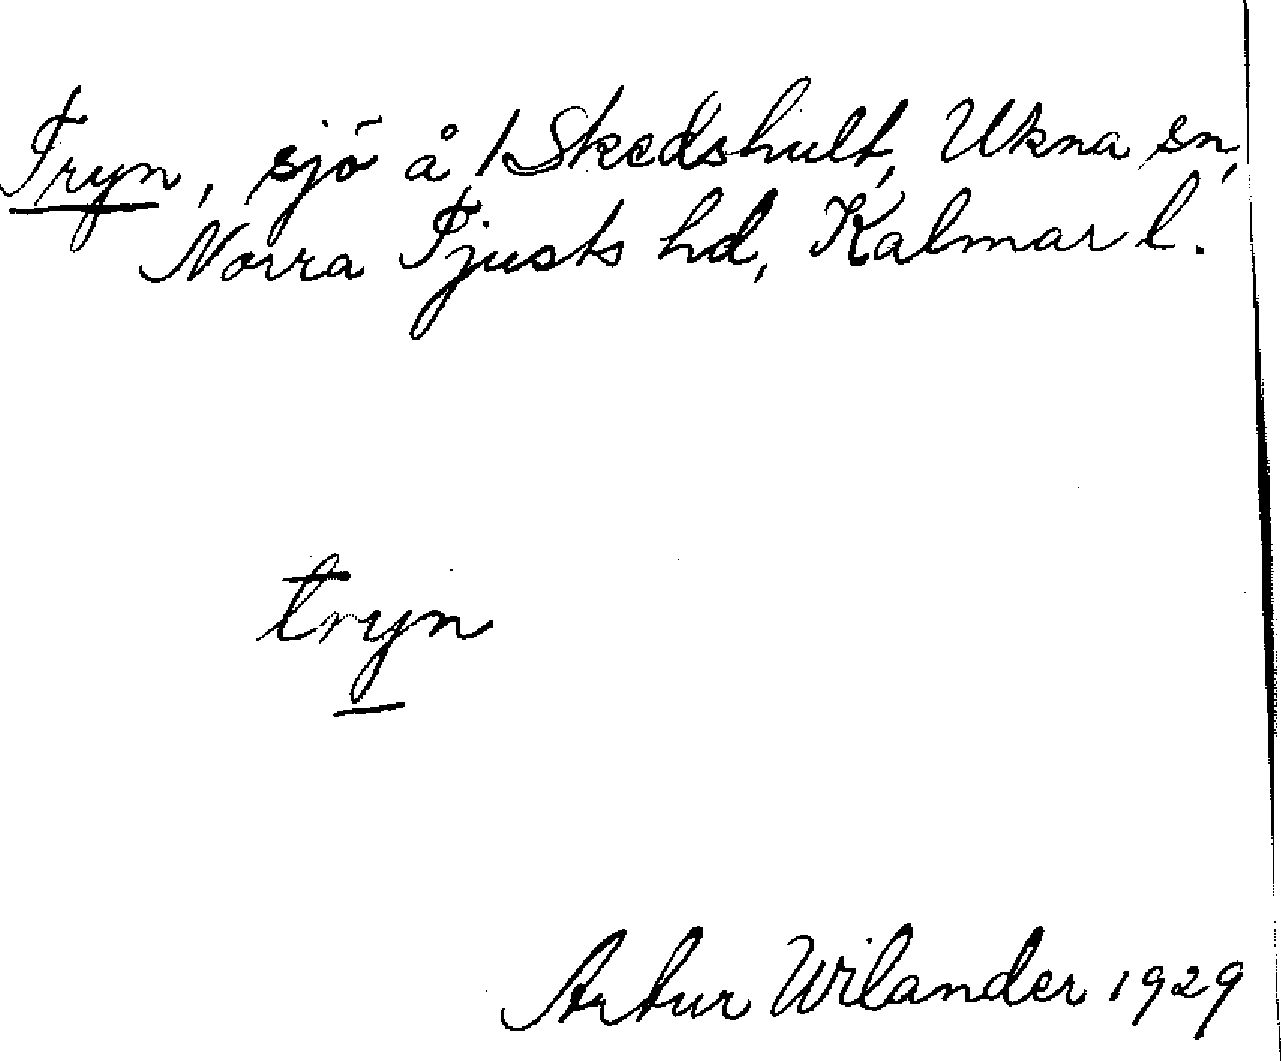 Tryn, sjö å /Skedshult, Ukna sn,
Norra Tjusts hd, Kalmar l.
tryn
Artur Wilander 1929